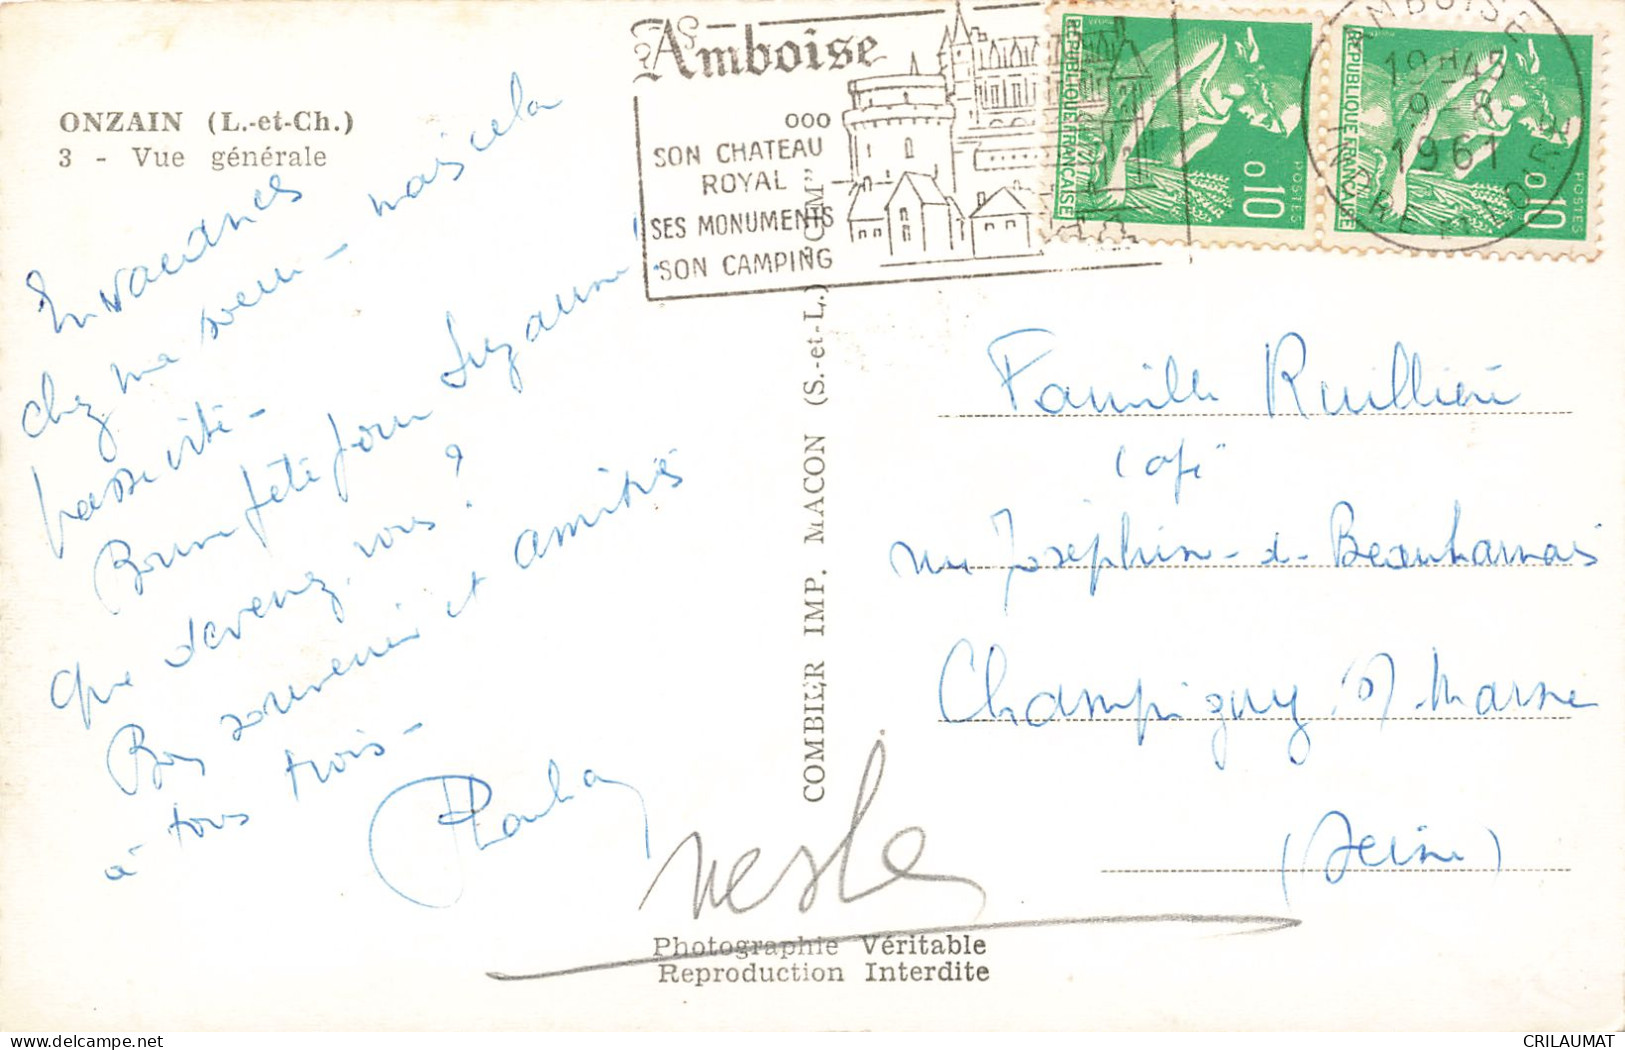 ONZAIN (L.-et-Ch.)
3 - Vue générale
En vacances
chez ma soeur - mais cela
passe vite -
Bonne fête pour Suzanne !
Que devenez-vous ?
Bons souvenirs et amitiés
à tous trois -
Amboise
ooo
SON CHATEAU
ROYAL
SES MONUMENTS
SON CAMPING
REPUBLIQUE FRANÇAISE
0,10
POSTES
REPUBLIQUE FRANÇAISE
0,10
POSTES
AMBOISE
19H45
9-8
1961
INDRE ET LOIRE
COMBIER IMP. MACON (S.-et-L.) "CIM"
Famille Ruillière
Café
rue Joséphine-de-Beauharnais
Champigny s/ Marne
(Seine)
Photographie Véritable
Reproduction Interdite
CRILAUMAT